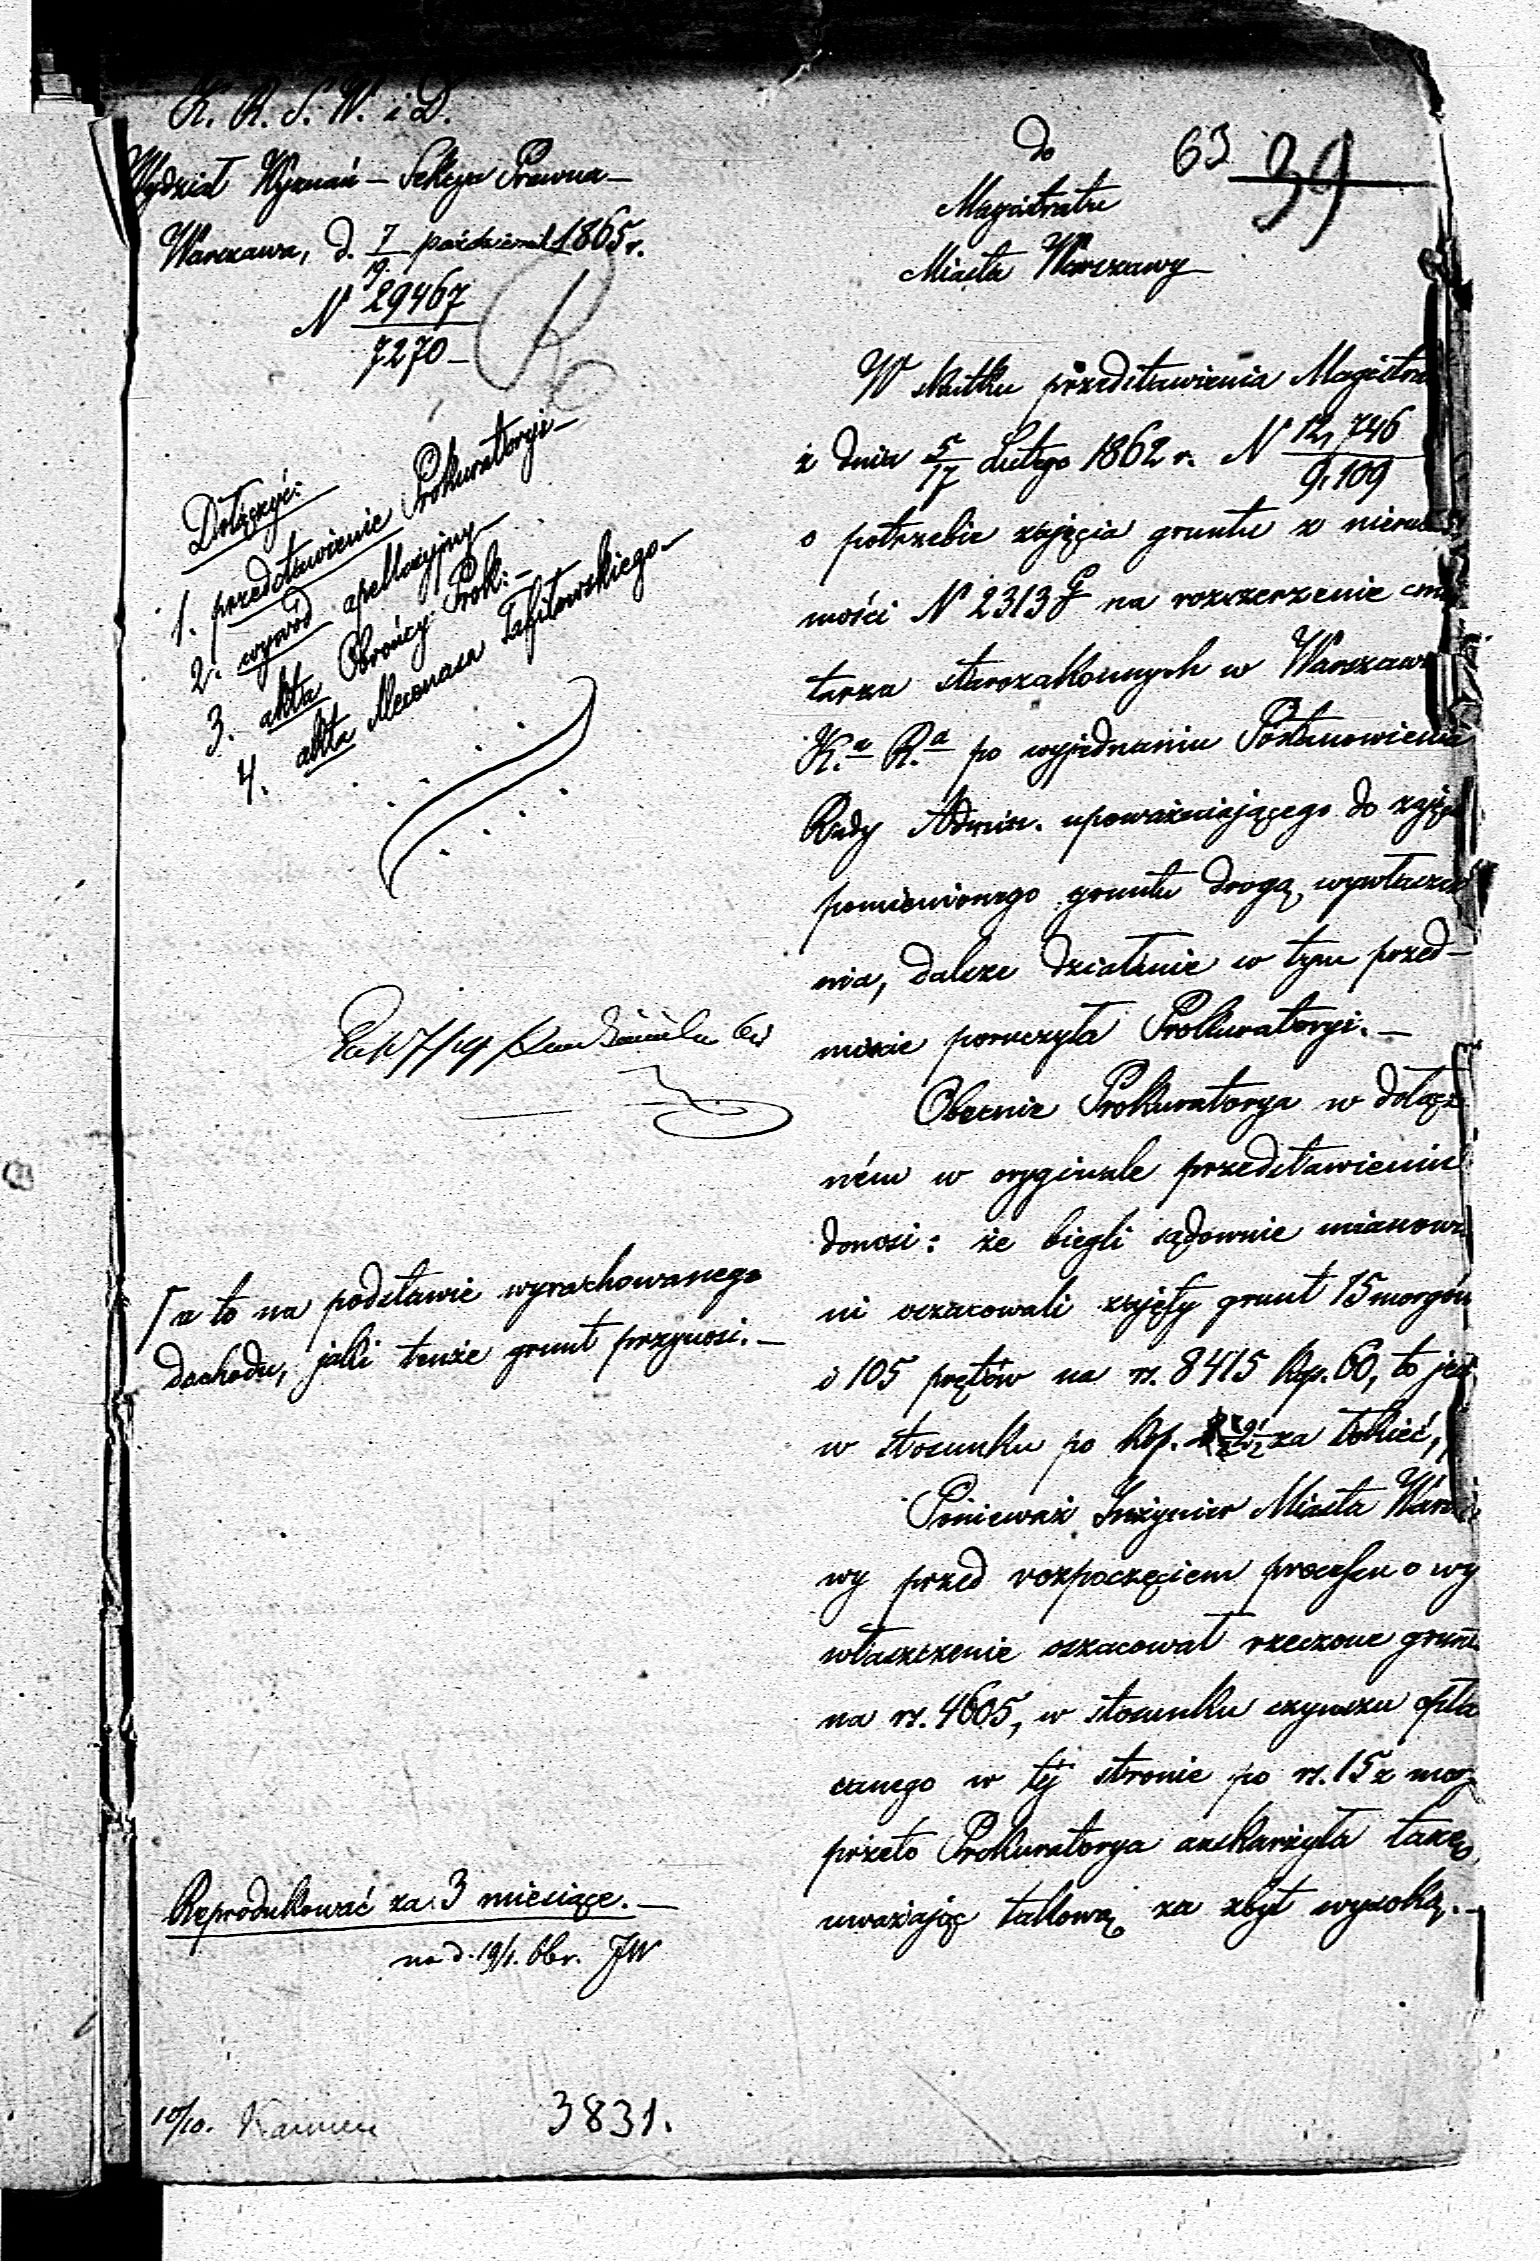 K. R. S. W. i D.
Wydział Wyznań – Sekcya Prawna –
Warszawa, d. 7/19 październik 1865 r.
N 29467/7270 –
do
Magistratu
Miasta Warszawy
63
39
Dołączyć:
1. przedstawienie Prokuratoryi –
2. wywód apellacyjny –
3. akta Obrońcy Prok: –
4. akta Mecenasa
W skutku przedstawienia Magistra
z dnia 5/17 Lutego 1862 r. N 12,746/9,109
o potrzebie zajęcia gruntu z nieru
mości N 2313 G na rozszerzenie cmę
tarza starozakonnych w Warszawie
K.a R.a po wyjednaniu Postanowienia
Rady Admin. upoważniającego do zajęc
pomienionego gruntu drogą wywłaszcze
nia, dalsze działanie w tym przed–
miocie poruczyła Prokuratoryi. –
Obecnie Prokuratorya w dołącz
ném w oryginale przedstawieniu
donosi: że biegli sądownie mianowa
ni oszacowali zajęty grunt 15 morgów
i 105 prętów na rs. 8415 kop. 60, to jest
w stosunku po kop. za łokieć,
a to na podstawie wyrachowanego
dochodu, jaki tenże grunt przynosi. –
Ponieważ Inżynier Miasta Warsza
wy przed rozpoczęciem processu o wy
właszczenie oszacował rzeczone grunt
na rs. 4605, w stosunku czynszu opła
canego w téj stronie po rs. 15 z mor
przeto Prokuratorya zaskarżyła taxę,
uważając takową za zbyt wysoką. –
Reprodukować za 3 miesiące. –
na d. 19/1. 66 r. JW
10/10.
3831.